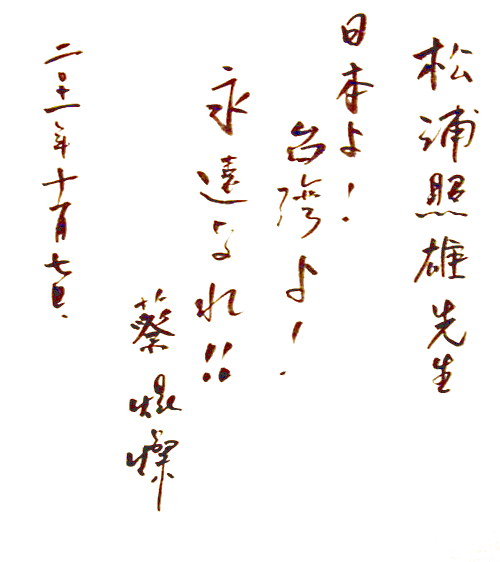 松浦照雄先生
日本よ！
台湾よ！
永遠なれ!!
蔡焜燦
二〇十一年十一月七日